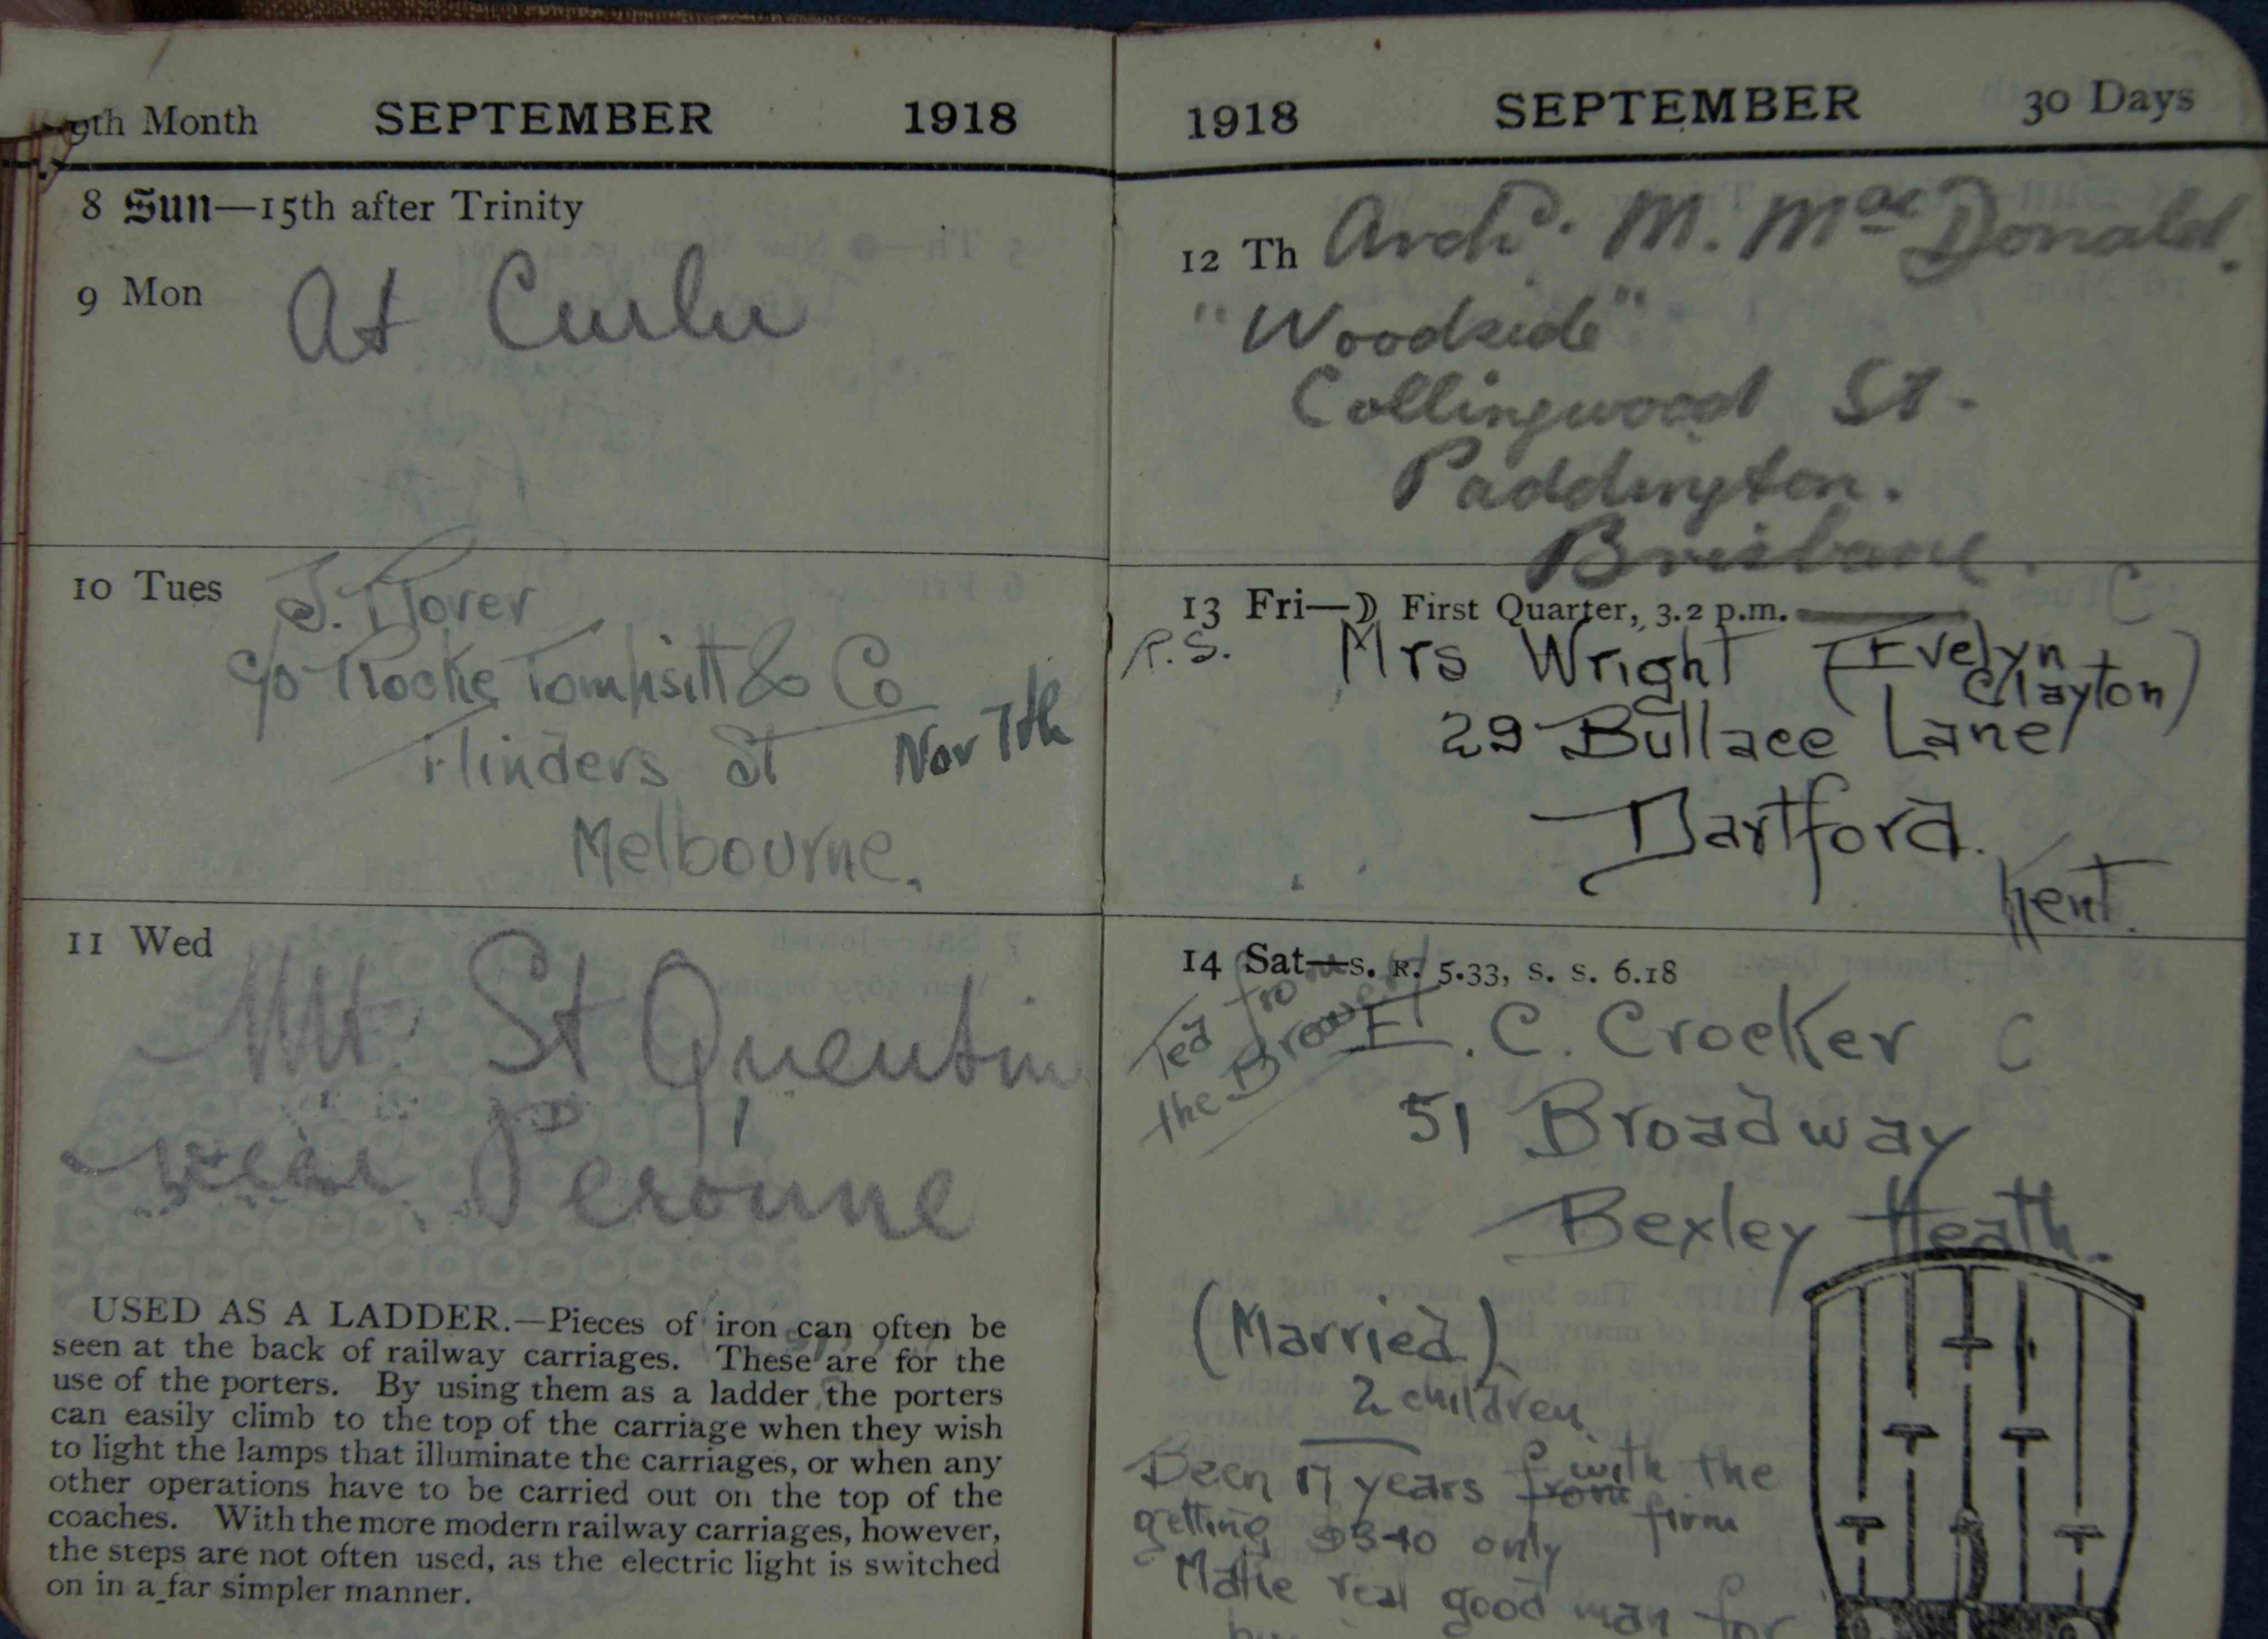 9th Month SEPTEMBER 1918
8 Sun—15th after Trinity
9 Mon
At Curlu
10 Tues
J. Dover
c/o Rocke Tompsitt & Co
Flinders St Nov 7th
Melbourne.
11 Wed
Mt St Quentin
near Peronne
USED AS A LADDER.—Pieces of iron can often be
seen at the back of railway carriages. These are for the
use of the porters. By using them as a ladder the porters
can easily climb to the top of the carriage when they wish
to light the lamps that illuminate the carriages, or when any
other operations have to be carried out on the top of the
coaches. With the more modern railway carriages, however,
the steps are not often used, as the electric light is switched
on in a far simpler manner.
1918 SEPTEMBER 30 Days
12 Th Archd. M. MacDonald.
"Woodside"
Collingwood St.
Paddington.
Brisbane.
C
13 Fri—☽ First Quarter, 3.2 p.m.
P.S. Mrs Wright (Evelyn
Clayton)
29 Bullace Lane
Dartford.
Kent.
14 Sat—S. R. 5.33, S. S. 6.18
Ted from
the Brewery
E. C. Crocker C
51 Broadway
Bexley Heath.
(Married)
2 children
Been 17 years from with the
firm
getting only
Make real good man for